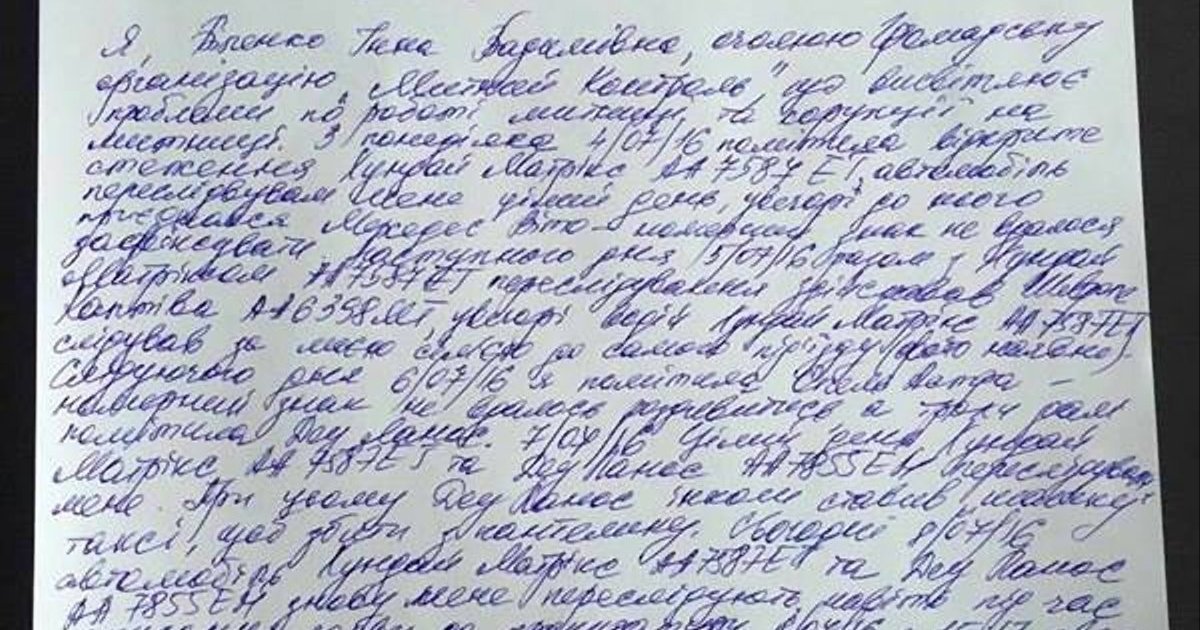 Я, Інна Вадимівна, очолюю Громадську
організацію „Митний Контроль", що висвітлює
проблеми по роботі митниці, та корупції на
митниці. З понеділка 4/07/16 помітила відкрите
стеження Хундай Матрікс АА 7587 ЕТ, автомобіль
переслідував мене цілий день, увечері до нього
приєднався Мерседес Віто – номерний знак не вдалося
зафіксувати. Наступного дня 5/07/16 разом з Хундай
Матріксом АА7587ЕТ переслідування здійснював Шевроле
Каптіва АА6398МТ, увечері водій Хундай Матрікс АА7587ЕТ
слідував за моєю сім'єю до самого під'їзду (фото
Следуючого дня 6/07/16 я помітила Опель Астра –
номерний знак не вдалось роздивитись а трохи далі
помітила Деу Ланос. 7/07/16 Цілий день Хундай
Матрікс АА 7587ЕТ та Деу Ланос АА7855ЕН переслідували
мене. При цьому Деу Ланос інколи ставив шашечку
таксі, щоб збити з пантелику. Сьогодні 8/07/16
автомобіль Хундай Матрікс АА7587ЕТ та Деу Ланос
АА 7855ЕН знову мене переслідують, навіть під час